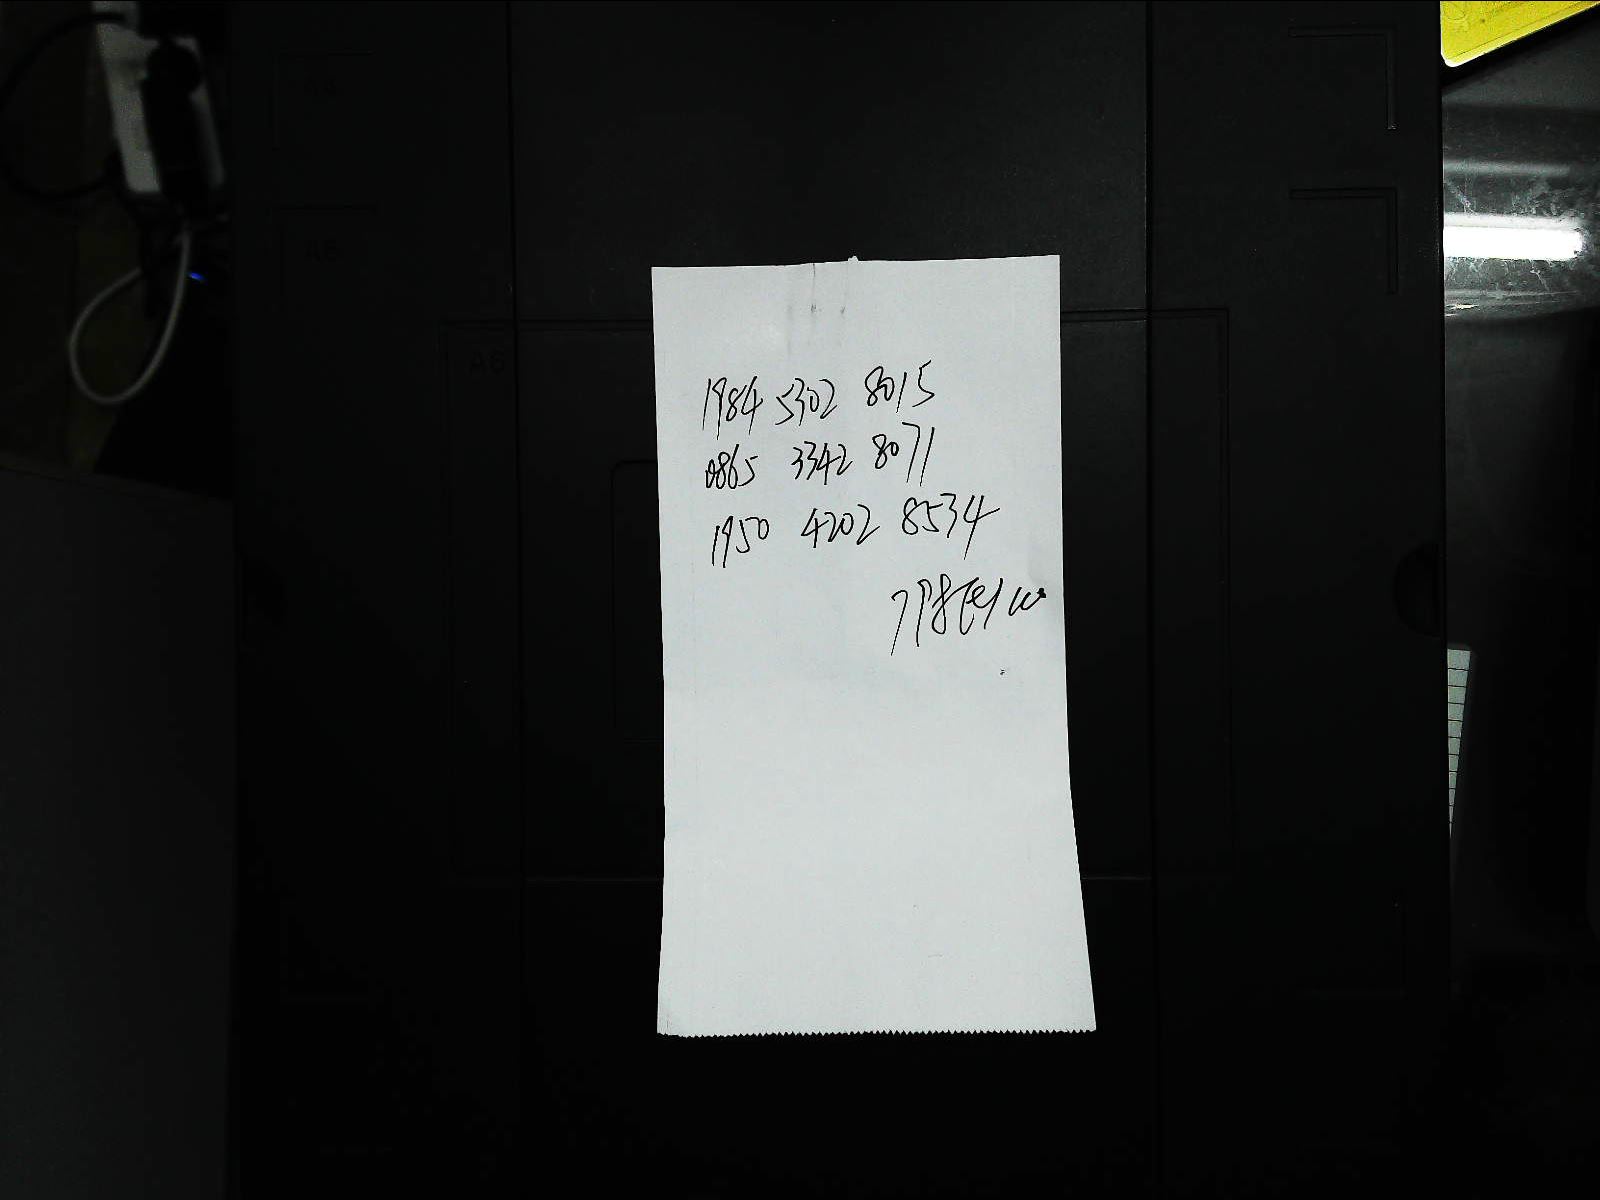 1984 5302 8015
0865 3342 8071
1950 4202 8534
A5
A6